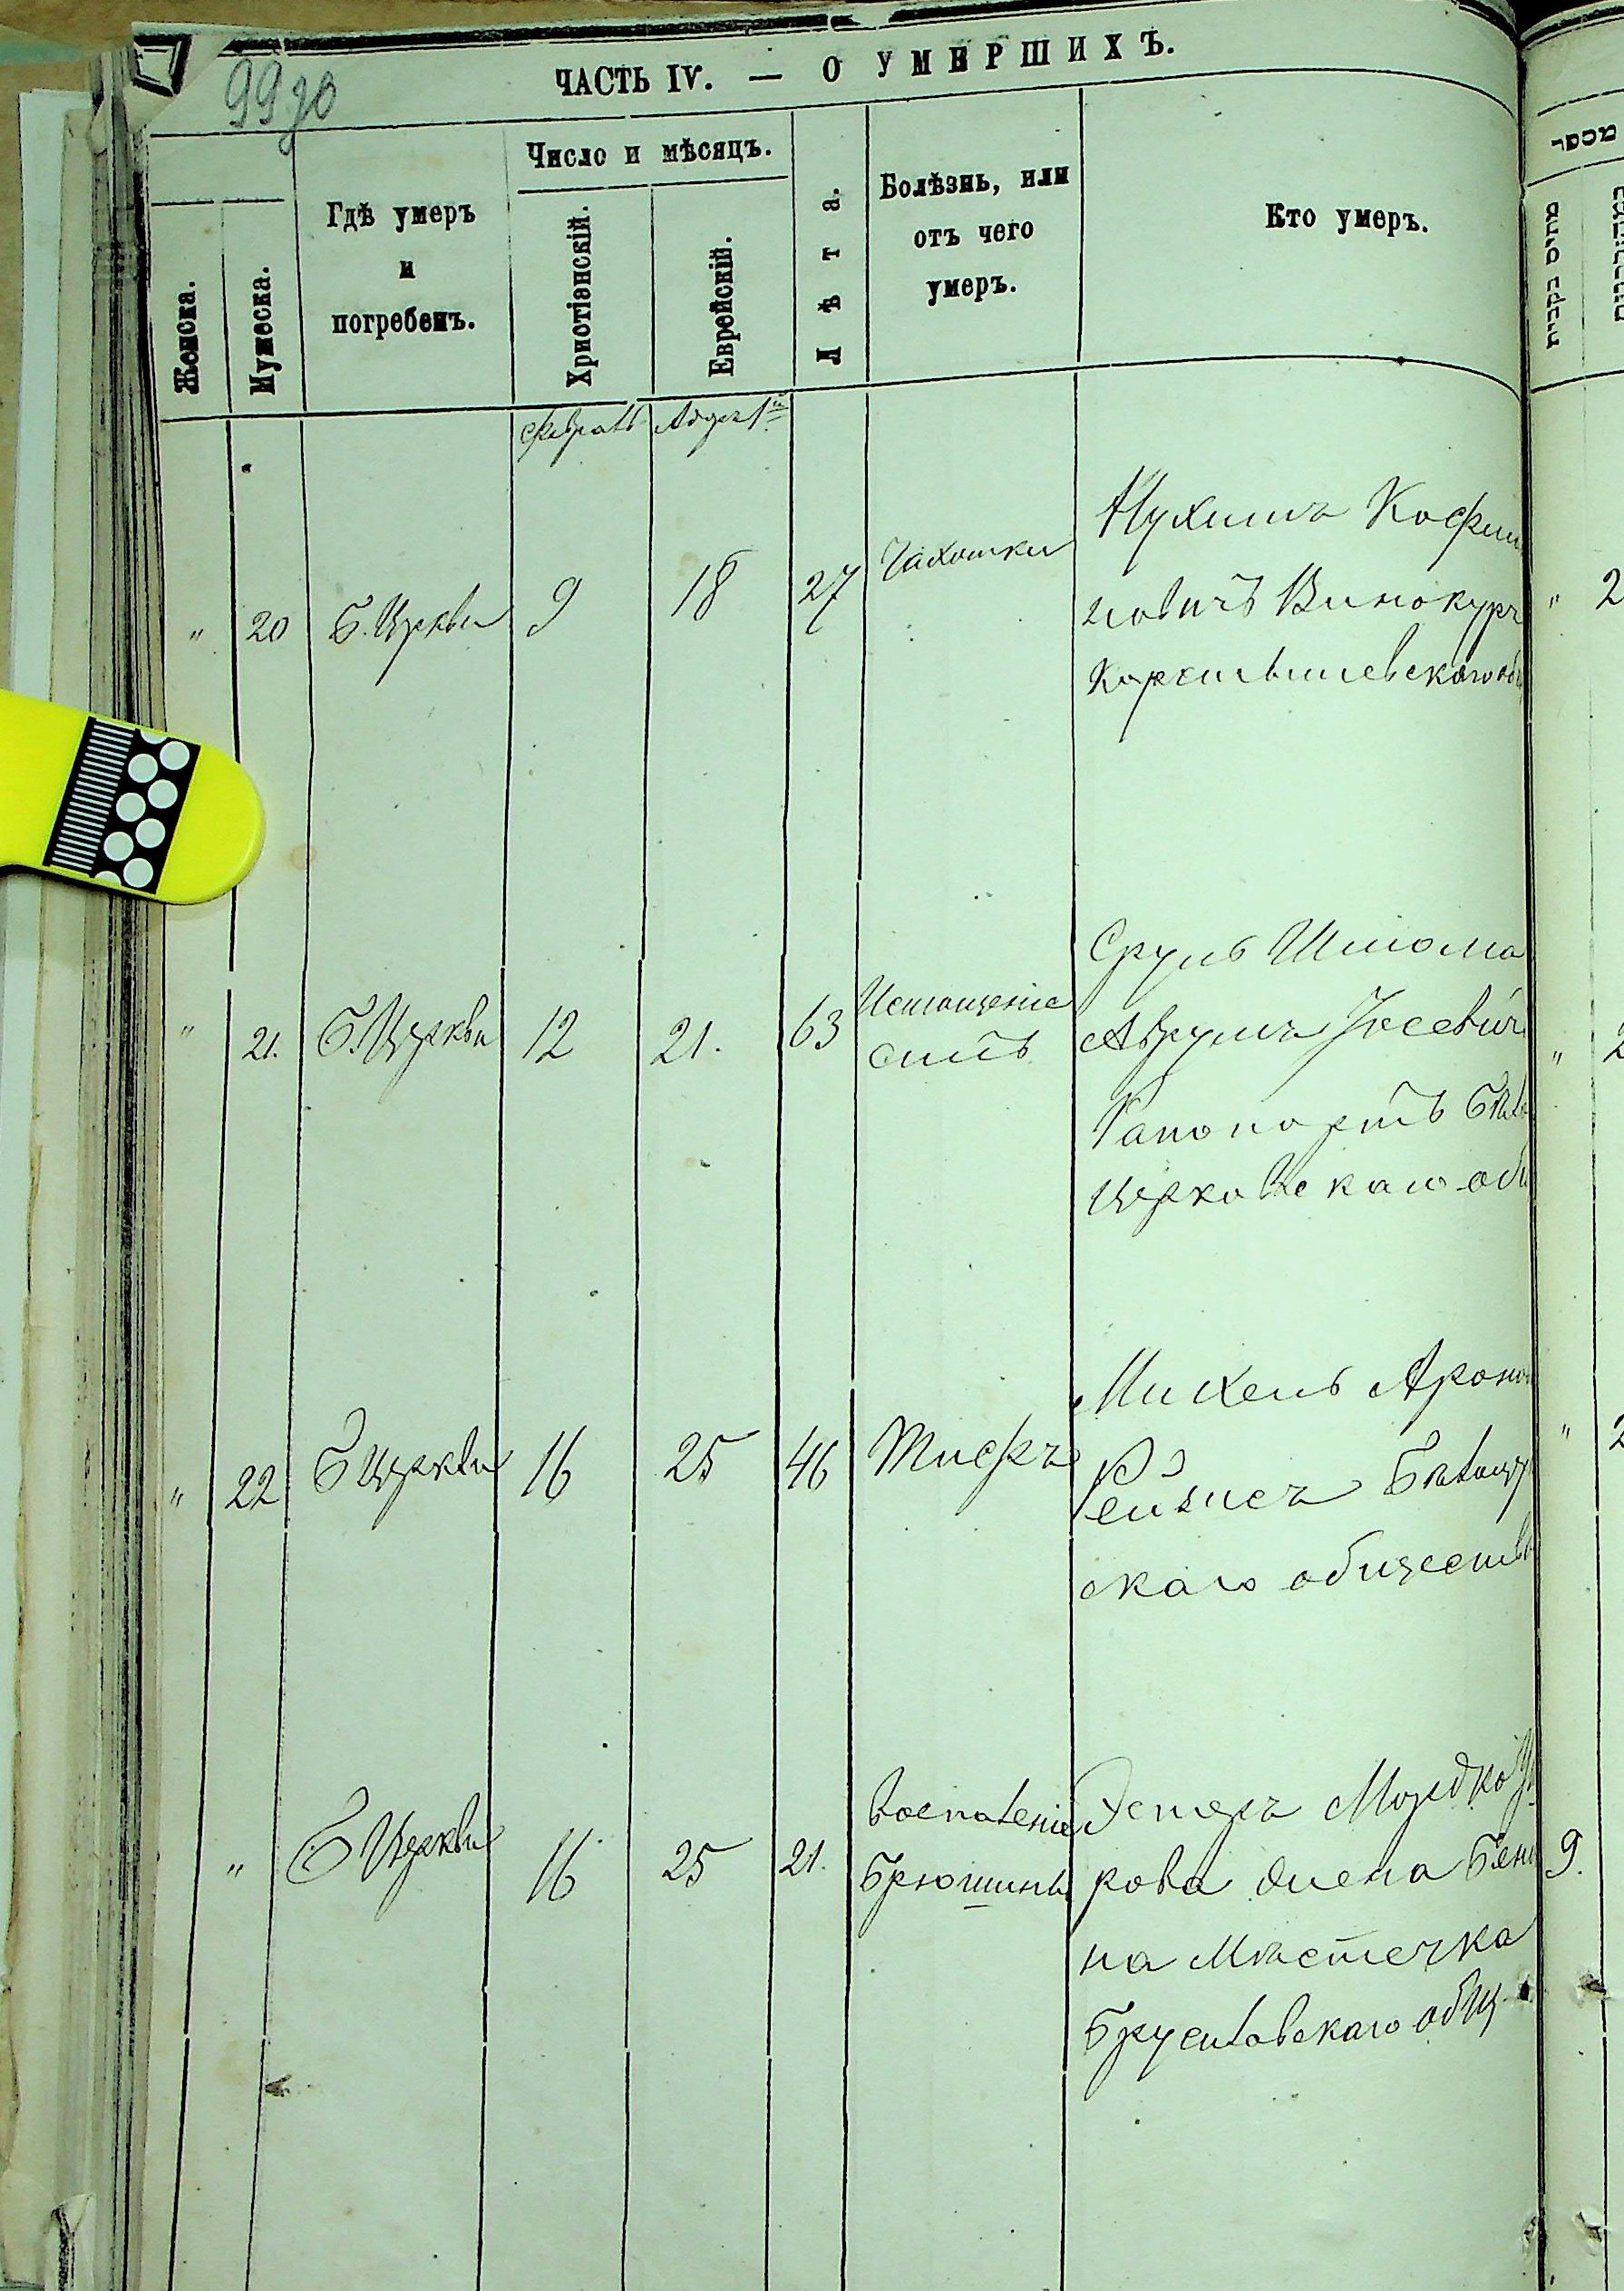 99
ЧАСТЬ IV. — О УМЕРШИХЪ.
Женска.
Мужеска.
Гдѣ умеръ
и
погребенъ.
Число и мѣсяцъ.
Христіенскій.
Еврейскій.
Лѣта.
Болѣзнь, или
отъ чего
умеръ.
Кто умеръ.
מספר
Февраль Адаръ 1й
" 20 Б. Церкви 9 18 27 Чахотки
Нухимъ
Винокуръ
" 21. Б. Церкви 12 21. 63 Истощеніе
силъ
Сруль Шлома
Аврумъ Іосевич
Рапопортъ Бѣло
церковскаго общ
" 22 Б Церкви 16 25 46 Тифъ
МихельАроно
Рейзисъ Бѣлоцер
скаго обществ
" Б Церкви 16 25 21. Воспаленіе
Брюшины
Эстеръ Мордко
рова жена
на Мѣстечка
Брусиловскаго общ
" 2
" 2
" 2
9.